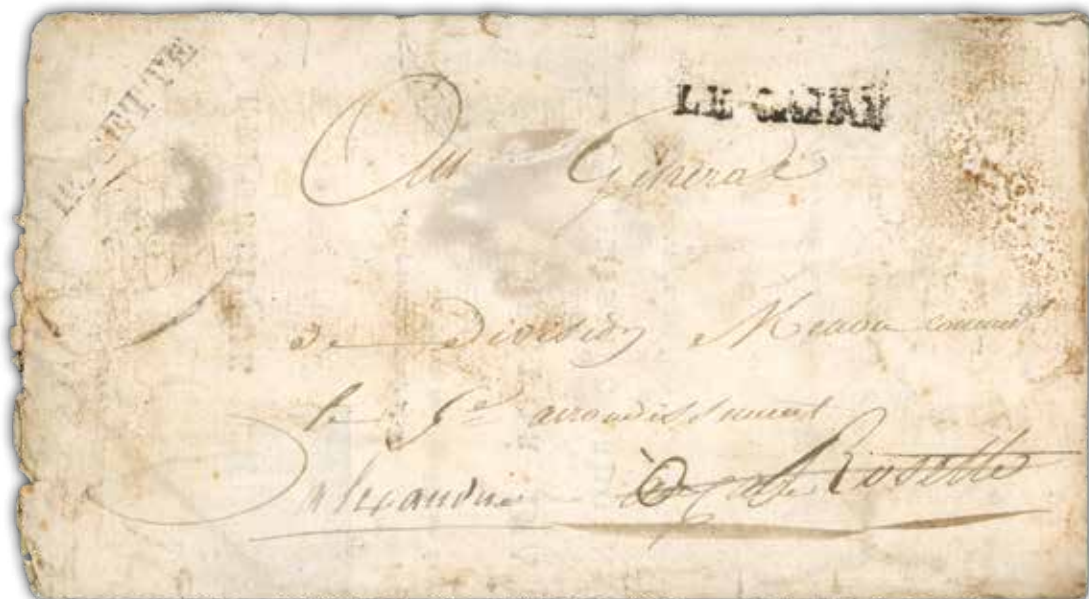 LE CAIRE
Au Général
de Division Menou command.t
le arrondissement
alexandrie à Rosette